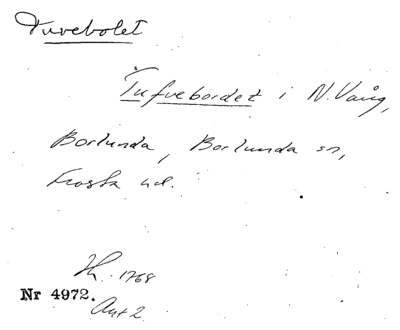 Tuvebolet
Tufvebordet i N. Vång,
Borlunda, Borlunda sn,
Frosta hd.
H. 1768
Nr 4972.
Akt 2